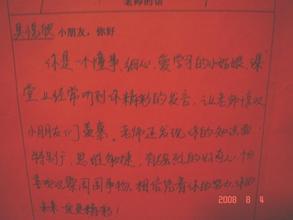 老师的话
小朋友，你好
你是一个懂事、细心、爱学习的小姑娘，课
堂上经常听到你精彩的发言，让老师惊叹
小朋友们羡慕。老师还发现你的知识面
特别广，思维敏捷，
观察周围事物，相信凭着你的努力，你的
未来一定更精彩！
2008 8 4